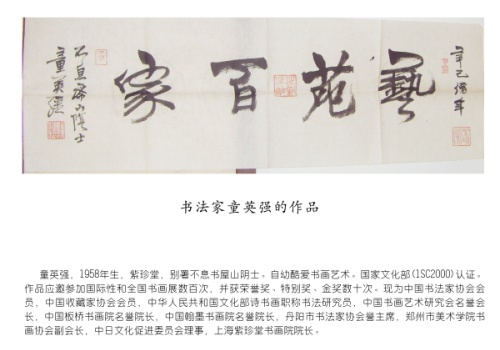 辛巳
藝苑百家
山陰士
童英强
书法家童英强的作品
童英强，1958年生，紫珍堂，别署不息书屋山阴士。自幼酷爱书画艺术。国家文化部(ISC2000)认证。
作品应邀参加国际性和全国书画展数百次，并获荣誉奖、特别奖、金奖数十次。现为中国书法家协会会
员，中国收藏家协会会员，中华人民共和国文化部诗书画职称书法研究员，中国书画艺术研究会名誉会
长，中国板桥书画院名誉院长，中国翰墨书画院名誉院长，丹阳市书法家协会誉主席，郑州市美术学院书
画协会副会长，中日文化促进委员会理事，上海紫珍堂书画院院长。